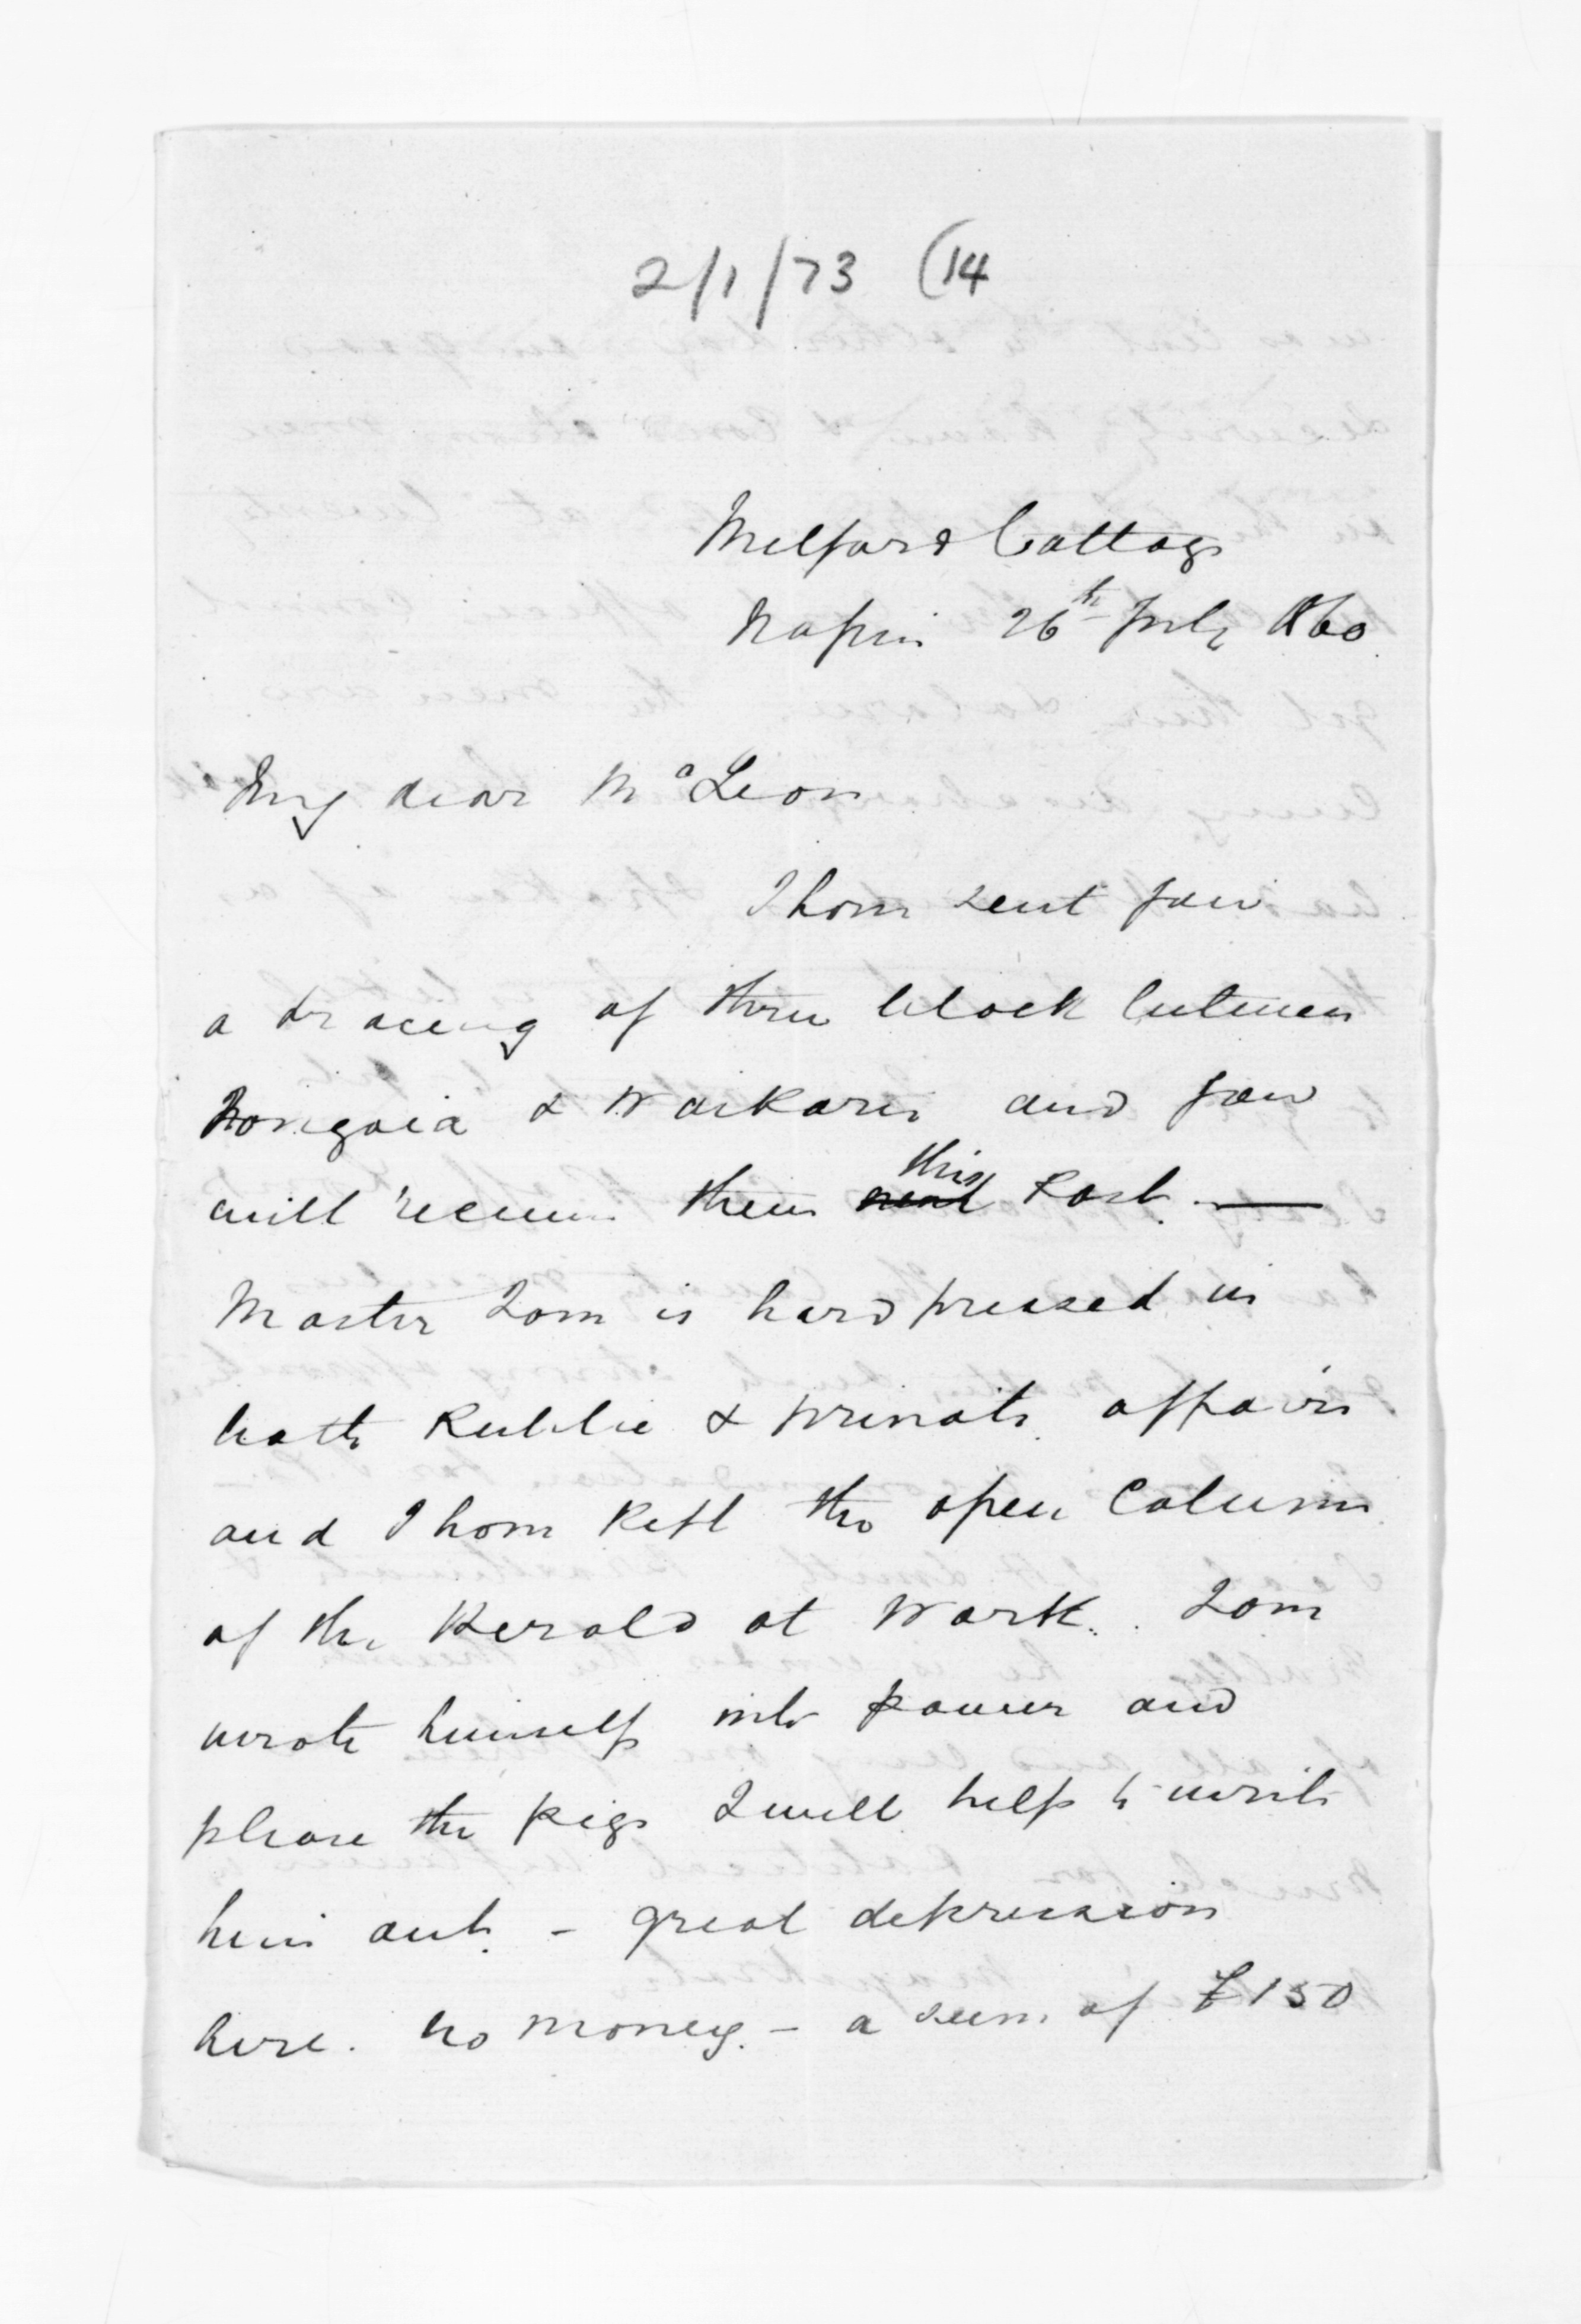 2/1/73 (14
Milford Cottage
Napier 26th July 1860.
My dear McLean
I have sent you
a tracing of three block between
& Waikari and you
will receive them this next Post. —
Master Tom is hard pressed in
both Public & private affairs
and I have kept the open Column
of the Herald at work. Tom
wrote himself into power and
please the pigs I will help to write
him out. - great depression
here. no money. - a sum of £150